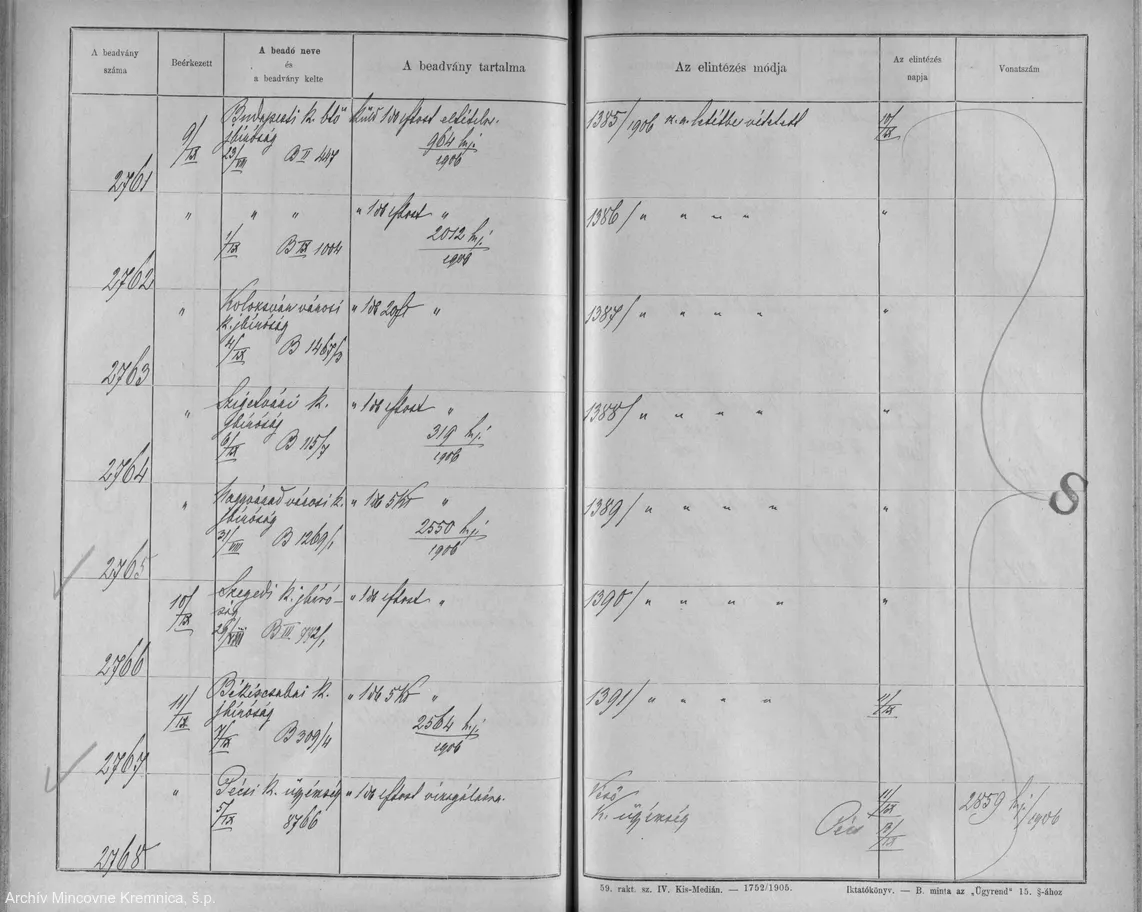 A beadvány
száma
Beérkezett
A beadó neve
és
a beadvány kelte
A beadvány tartalma
Az elintézés módja
Az elintézés
napja
Vonatszám
2761
9/IX
Budapesti k. btő
jbíróság
23/VIII B II 447
küld 1 db 1 frtost
964 hj.
1906
1385/1906
10/IX
2762
" " "
1/IX B IX 1004
" 1 db 1 frtost "
2012 hj.
1906
1386/ " " " "
"
2763
"
Kolozsvár városi
k. jbíróság
4/IX B 1467/3
" 1 db "
1387/ " " " "
"
2764
"
Szigetvári k.
jbíróság
6/IX B 115/7
" 1 db 1 frtost "
319 hj.
1906
1388/ " " " "
"
2765
"
Nagyvárad városi k.
jbíróság
31/VIII B 1269/1
" 1 db 5 Kr "
2550 hj.
1906
1389/ " " " "
"
2766
10/IX
Szegedi k. jbíró-
ság
B III
" 1 db 1 frtost "
1390/ " " " "
"
2767
11/IX
Békéscsabai k.
jbíróság
7/IX B 309/4
" 1 db 5 Kr "
2564 hj.
1906
1391/ " " " "
11/IX
2768
"
Pécsi k. ügyészség
5/IX 8766
" 1 db 1 frtost vizsgálatra.
K. ügyészség
Pécs
11/IX
2859 hj./1906
8
59. rakt. sz. IV. Kis-Medián. — 1752/1905.
Iktatókönyv. — B. minta az „Ügyrend" 15. §-ához
Archív Mincovne Kremnica, š.p.